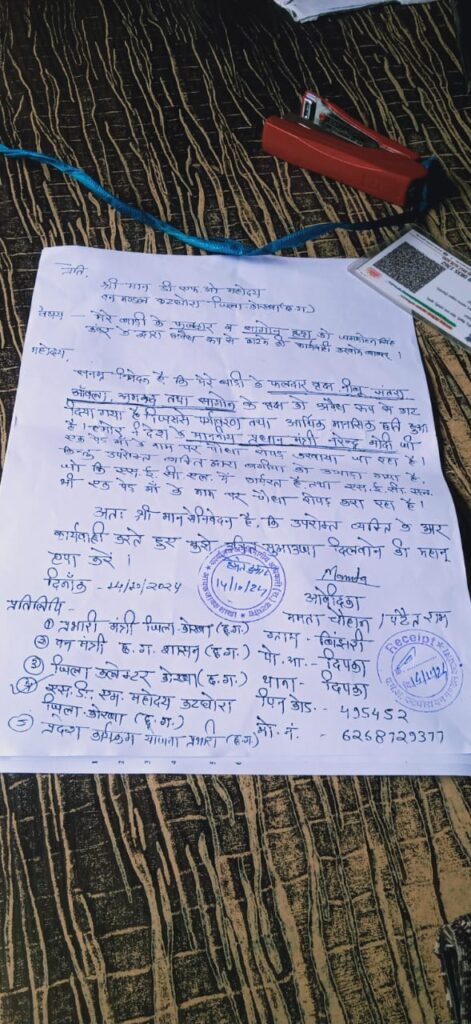 प्रति,
श्री मान डी एफ ओ महोदय
वन मण्डल कटघोरा जिला कोरबा (छ.ग.)
विषय - मेरे बाड़ी के फलदार व सागौन वृक्ष को
के द्वारा अवैध रूप से काटने की कार्यवाही करवाने बाबत् ।
महोदय,
सनम्र निवेदन है, कि मेरे बाड़ी के फलदार वृक्ष नीबू, संतरा
आँवला, अमरूद तथा सागौन के वृक्ष को अवैध रूप से काट
दिया गया है जिससे पर्यावरण तथा आर्थिक मानसिक क्षति हुआ
है । हमारे देश के माननीय प्रधान मंत्री नरेन्द्र मोदी जी
एक पेड़ माँ के नाम पर पौधा रोपण करवाया जा रहा है ।
किन्तु उपरोक्त व्यक्ति द्वारा बगीचा को उजाड़ा गया है,
जो कि एस.ई.सी.एल. में कार्यरत है तथा एस.ई.सी.एल.
भी एक पेड़ माँ के नाम पर पौधा रोपण करा रहा है ।
अतः श्री मान से निवेदन है, कि उपरोक्त व्यक्ति के ऊपर
कार्यवाही करते हुए मुझे उचित मुआवजा दिलवाने की महान
कृपा करें ।
दिनाँक - 14/10/2024
14/10/24
Mamta
आवेदिका
ममता चौहान / पटैत राम
प्रतिलिपि -
① प्रभारी मंत्री जिला कोरबा (छ.ग.)
ग्राम -
② वन मंत्री छ.ग. शासन (छ.ग.)
पो. आ. - दिपका
③ जिला कलेक्टर कोरबा (छ.ग.)
थाना - दिपका
④ एस.डी.एम. महोदय कटघोरा
जिला कोरबा (छ.ग.)
पिन कोड - 495452
⑤ प्रभारी (छ.ग.)
मो. नं. - 6268729377
Receipt
14/10/24